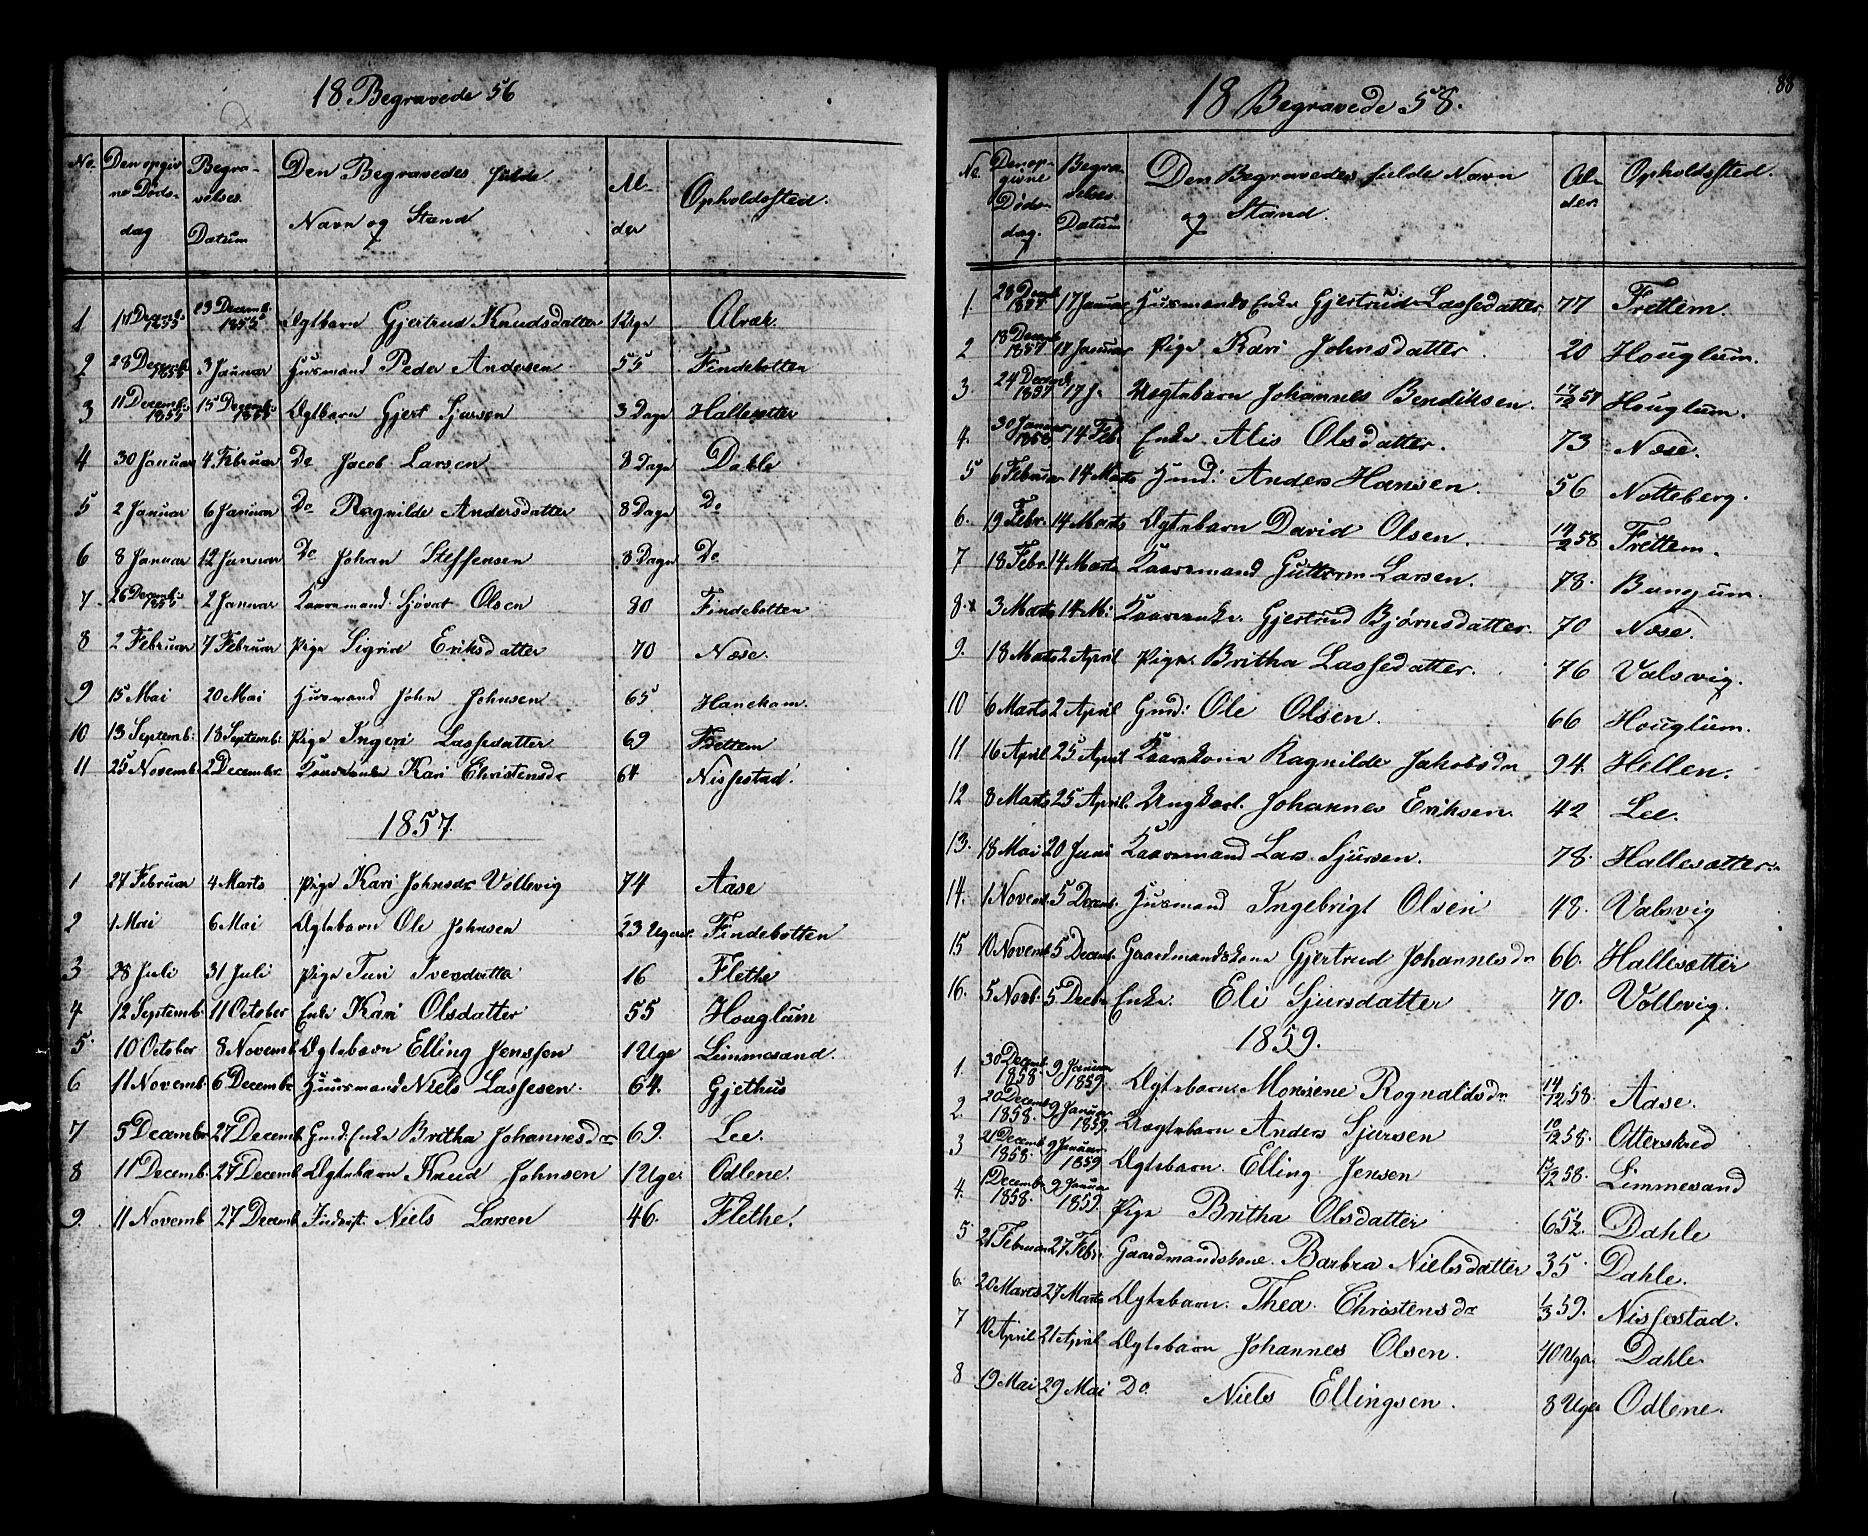 18 Begravede 56
No. Den opgivne Dødsdag Begravelses Datum Den Begravedes fulde Navn og Stand Alder Opholdssted.
1 11 Decemb. 1855 23 Decemb. 1855 Ægtbarn Gjertrud Knudsdatter 12 Uger Alræk.
2 28 Decemb 1855 3 Januar Huusmand Peder Andersen 55 Findebotten
3 11 Decemb. 1855 15 Decemb. 1855 Ægtbarn Gjert Sjursen 3 Dage Hallesætter
4 30 Januar 4 Februar Do Jacob Larsen 8 Dage Dahle
5 2 Januar 6 Januar Do Ragnilde Andersdatter 8 Dage Do
6 8 Januar 12 Januar Do Johan Steffensen 8 Dage Do
7 26 Decemb. 1855 2 Januar Kaarmand Sjovat Olsen 80 Findebotten
8 2 Februar 7 Februar Pige Sigrid Eriksdatter 70 Næse.
9 15 Mai 20 Mai Huusmand John Johnsen 65 Hanekam.
10 13 Septemb. 18 Septemb. Pige Ingeri Lassedatter 69 Frettem
11 25 Novemb. 2 Decembr. Kaarenke Kari Christensdr 64 Nissestad.
1857.
1 27 Februar 4 Marts Pige Kari Johnsdr Vollevig 74 Aase
2 1 Mai 6 Mai Ægtebarn Ole Johnsen 23 Uger Findebotten
3 28 Juli 31 Juli Pige Turi Iversdatter 16 Flethe
4 12 Septemb. 11 October Enke Kari Olsdatter 55 Houglum
5. 10 October 8 Novemb. Ægtebarn Elling Jensson 1 Uge Limmesand.
6 11 Novemb. 6 Decembr Huusmand Niels Lassesen. 64. Gjethus
7 5 Decembr 27 Decemb. Gmd. Enke Britha Johannesdr 69. Lee.
8 11 Decemb. 27 Decemb. Ægtebarn Knud Johnsen 1 Uge. Odlene.
9. 11 Novemb. 27 Decemb. Niels Larsen 46. Flethe.
88
18 Begravede 58.
No. Den opgivne Dødsdag. Begravelses Datum Den Begravedes fulde Navn og Stand. Alder Opholdssted.
1. 28 Decemb 1857 17 Januar Huusmands Enke Gjertrud Lassedatter. 77 Frettem.
2 18 Decemb 1857 17 Januar Pige Kari Johnsdatter. 20 Houglum.
3 24 Decemb 1857 17 J. Uægtebarn Johannes Bendiksen. 17/12 57 Houglum.
4. 30 Januar 1858 14 Feb. Enke Alis Olsdatter. 73 Næse.
5 6 Februar 14 Marts Gmd: Anders Hansen. 56 Notteberg.
6. 19 Febr. 14 Marts Ægtebarn David Olsen. 14/2 58 Frettem.
7 18 Febr. 14 Marts Kaarmand Guttorm Larsen. 78. Bungum.
8. 3 Marts 14 M. Kaarenke. Gjertrud Bjørnsdatter. 70 Næse.
9. 18 Marts 2 April Pige. Britha Lassedatter. 76 Valsvig.
10 6 Marts 2 April Gmd: Ole Olsen. 66 Houglum.
11 16 April 25 April Kaarkone Ragnilde Jakobsdr 94. Hellen.
12 8 Marts 25 April. Ungkarl. Johannes Eriksen. 42 Lee.
13. 18 Mai 20 Juni Kaarmand Lars Sjursen. 78. Hallesætter.
14. 1 Novemb. 5 Decemb. Huusmand Ingebrigt Olsen 48. Valsvig
15 10 Novemb. 5 Decemb. Gaardmandskone Gjertrud Johannesdr 66. Hallesætter
16. 5 Novb. 5 Decbr Enke. Eli Sjursdatter 70. Vollevig.
1859.
1. 30 Decemb. 1858. 9 Januar 1859. Ægtebarn. Monsine Rognaldsdr 14/12 58. Aase.
2. 20 Decemb. 1858. 9 Januar 1859. Uægtebarn Anders Sjursen 10/12 58. Otterskred
3 21 Decemb. 1858. 9 Januar 1859 Ægtebarn. Elling Jensen 13/12 58. Limmesand
4. 1 Decemb. 1858. 9 Januar 1859. Pige Britha Olsdatter 65 1/2. Dahle
5 21 Februar 27 Febr. Gaardmandskone. Barbra Nielsdatter 35 Dahle.
6. 20 Marts 27 Marts Ægtebarn. Thea. Christensdr 1/3 59. Nissestad.
7 10 April 21 April Ægtebarn Johannes Olsen. 40 Uger Dahle
8 19 Mai 29 Mai Do. Niels Ellingsen. 8 Uger Odlene.